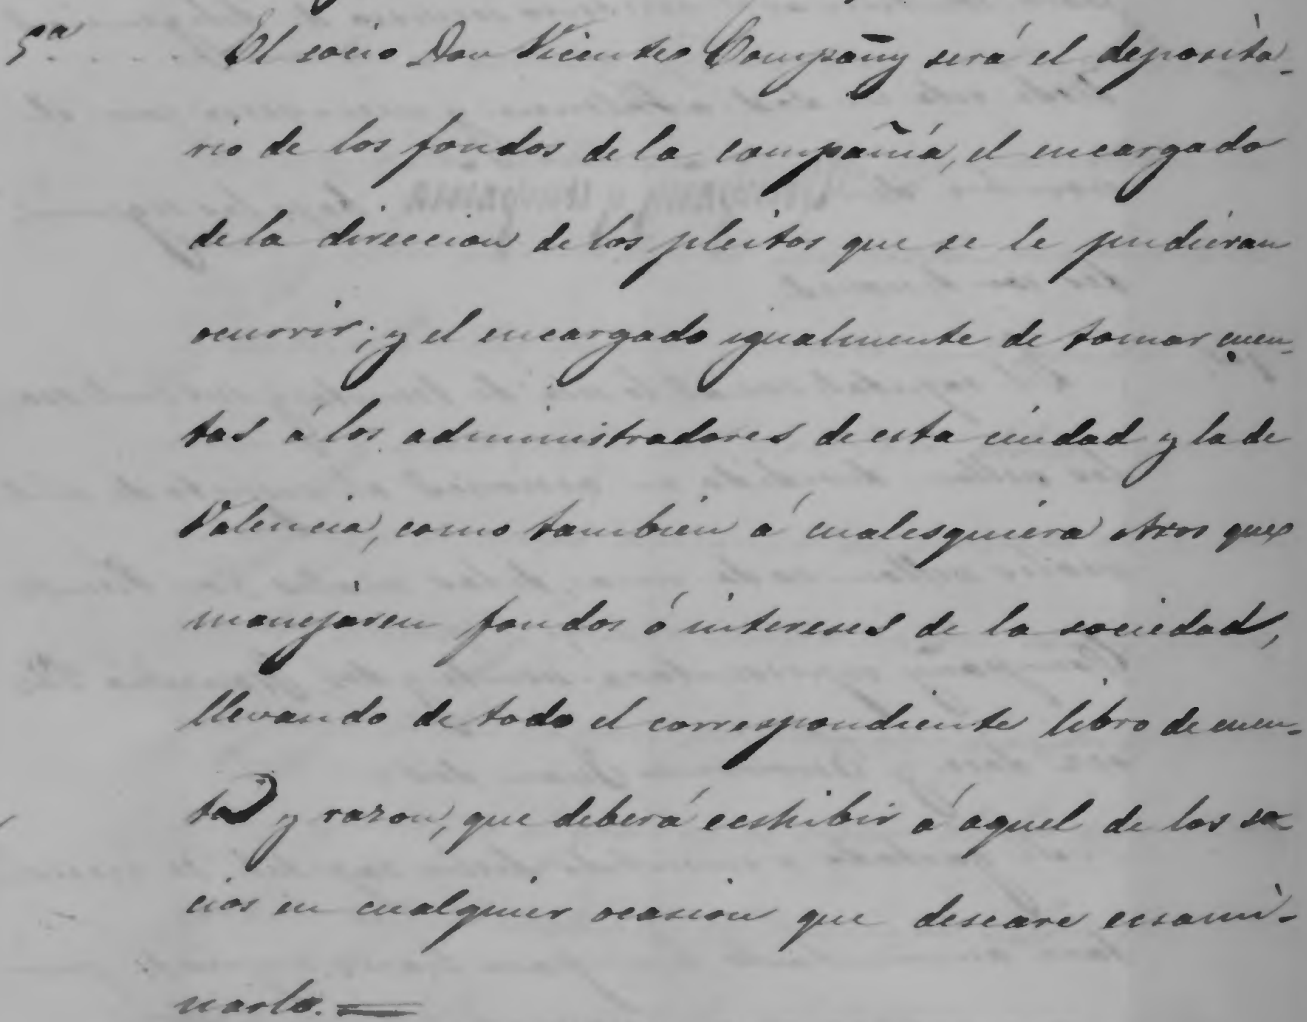 5ª.... El socio Don Vicente Compañy será el deposita-
rio de los fondos de la compañía, el encargado
de la direccion de los pleitos que se le pudieran
ocurrir; y el encargado igualmente de tomar cuen-
tas á los administradores de esta ciudad y la de
Valencia, como tambien á cualesquiera otros que
manejaren fondos ó intereses de la sociedad,
llevando de todo el correspondiente libro de cuen-
ta y razon, que deberá ecshibir á aquel de los so-
cios en cualquier ocasion que deseare ecsami-
narlo.